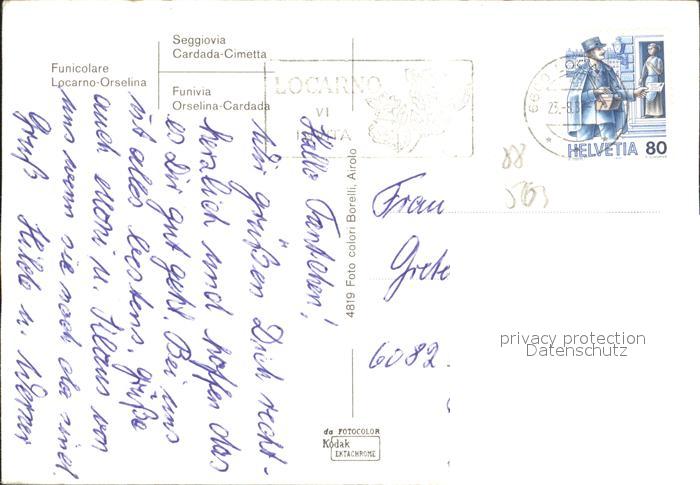 Seggiovia
Cardada-Cimetta
Funicolare
Locarno-Orselina
Funivia
Orselina-Cardada
LOCARNO
VI
6600
23.-8.
HELVETIA 80
88
Hallo Tantchen!
Wir grüßen Dich recht-
herzlich und hoffen das
es Dir gut geht. Bei uns
ist alles bestens. Grüße
auch Moni u. Klaus von
uns wenn sie noch da sind.
Gruß Hilde u. Werner
4819 Foto colori Borelli, Airolo
Frau
Grete
6082
privacy protection
Datenschutz
da FOTOCOLOR
Kodak
EKTACHROME